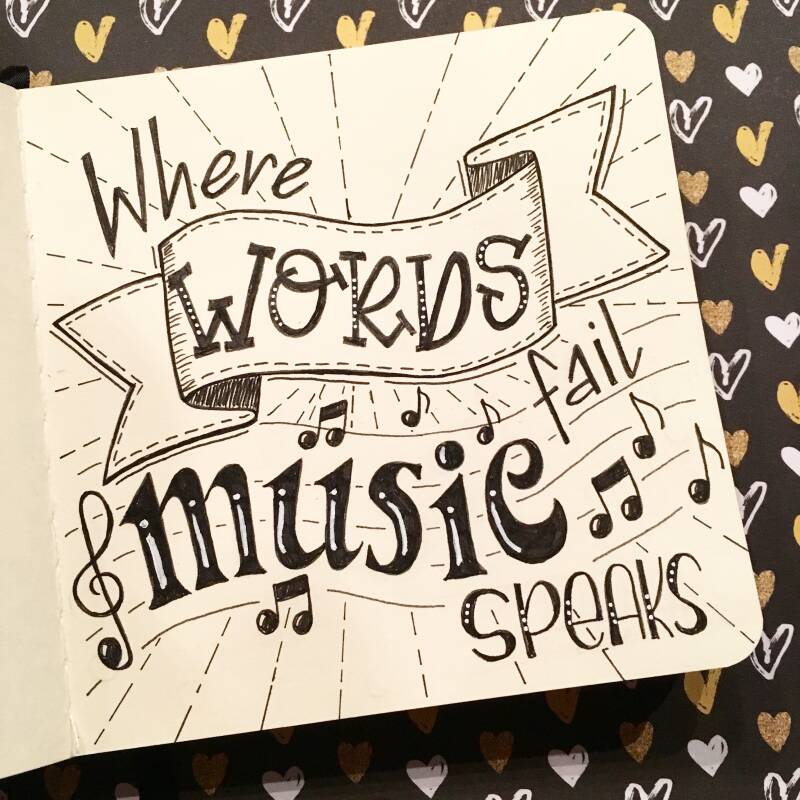 Where
WORDS
fail
music
SPEAKS